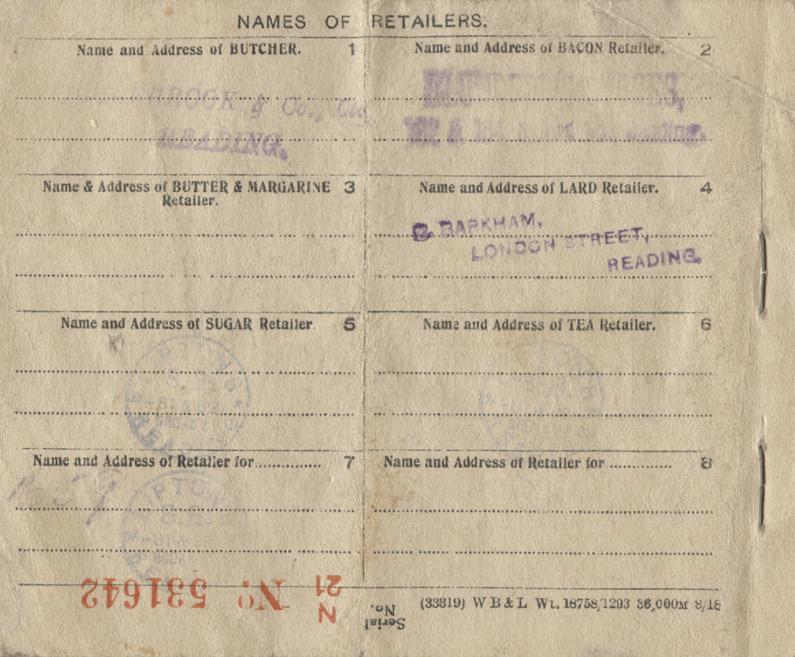 NAMES OF RETAILERS.
Name and Address of BUTCHER. 1
& Co.,
READING.
Name and Address of BACON Retailer. 2
Name & Address of BUTTER & MARGARINE 3
Retailer.
Name and Address of LARD Retailer. 4
BARKHAM,
LONDON STREET,
READING.
Name and Address of SUGAR Retailer 5
Name and Address of TEA Retailer. 6
Name and Address of Retailer for.............. 7
Name and Address of Retailer for ............. 8
LIPTON
N 21 No. 531642
Serial No.
(33319) W B & L Wt. 18758/1293 36,000M 8/18